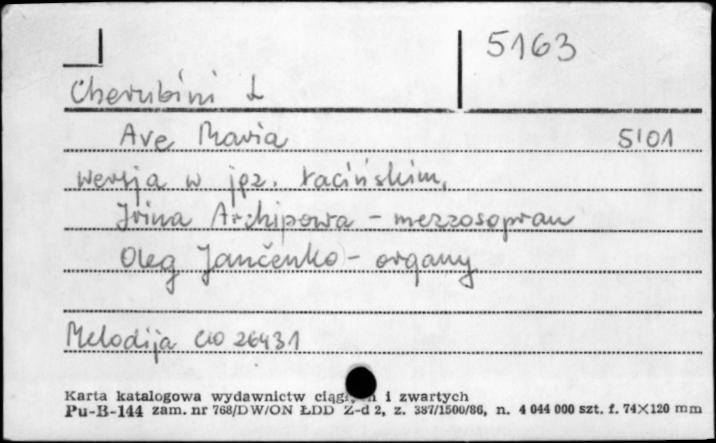 5163
Cherubini L
Ave Maria 5'01
wersja w jęz. łacińskim,
Irina Archipowa - mezzosopran
Oleg Jančenko - organy
Melodija C10 26431
Karta katalogowa wydawnictw ciągłych i zwartych
Pu-B-144 zam. nr 768/DW/ON ŁDD Z-d 2, z. 387/1500/86, n. 4 044 000 szt. f. 74×120 mm